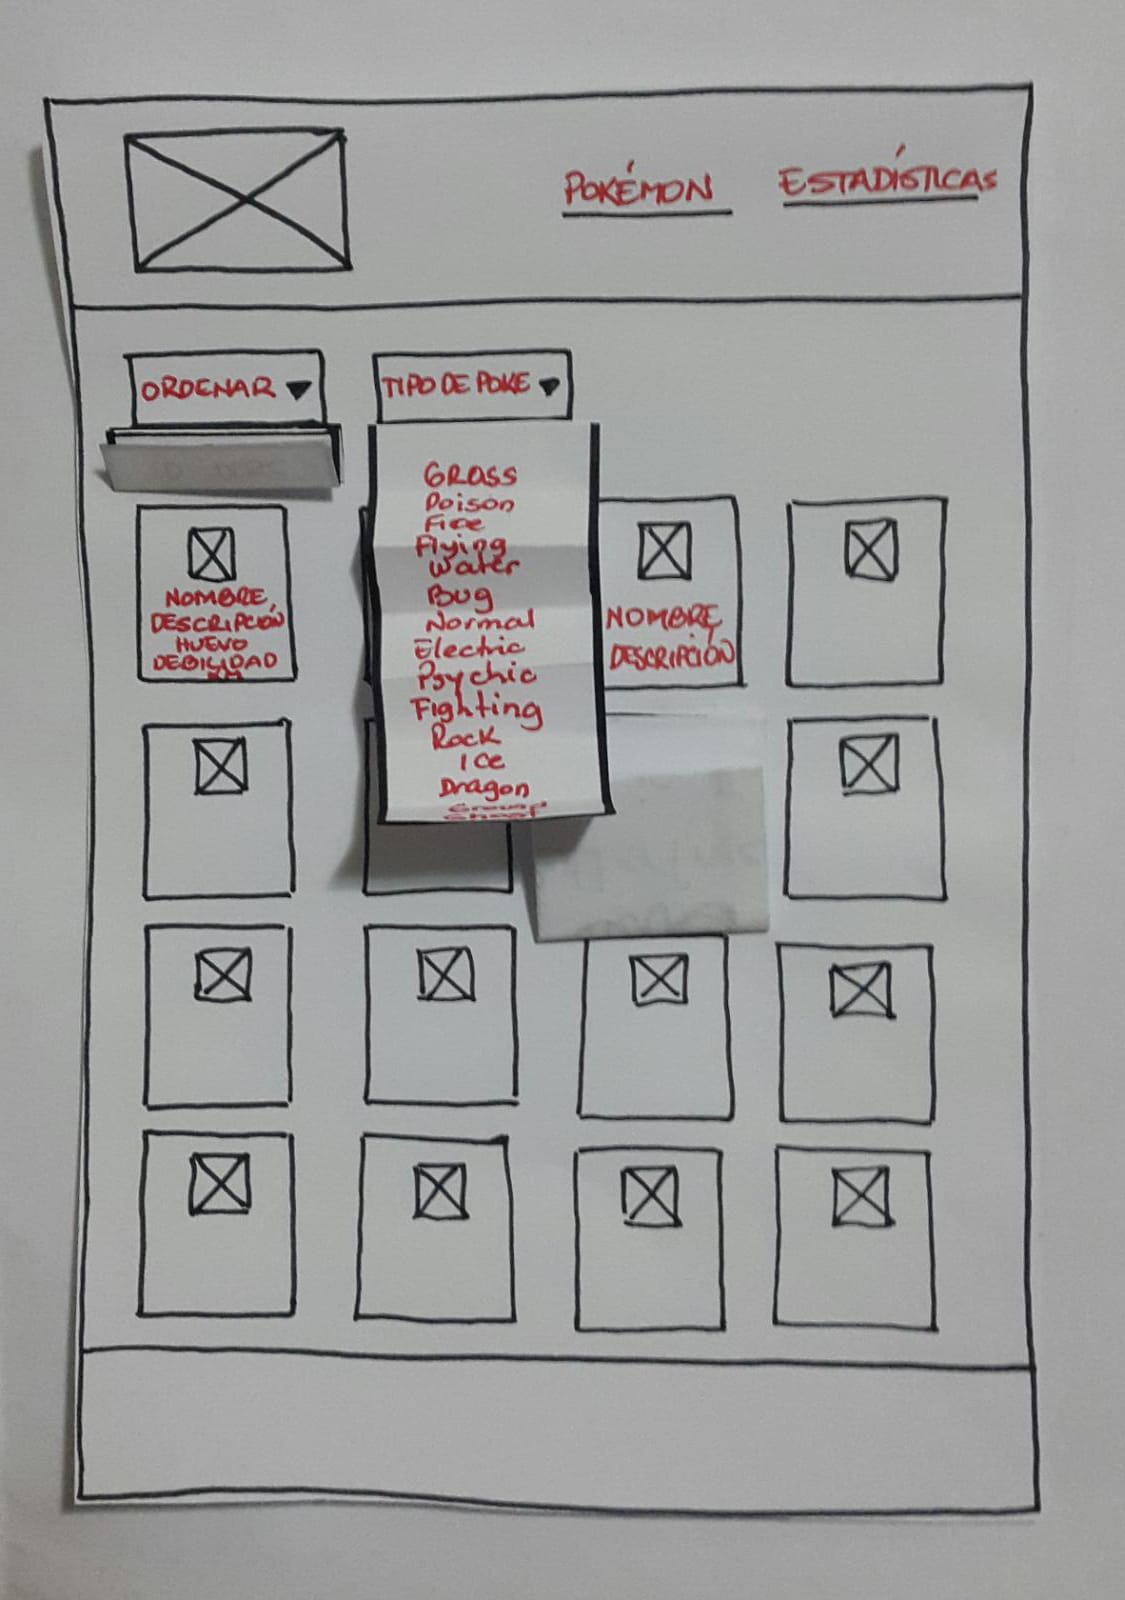 POKÉMON
ESTADÍSTICAS
ORDENAR
TIPO DE POKE
GRASS
Poison
Fire
Flying
Water
Bug
Normal
Electric
Psychic
Fighting
Rock
Ice
Dragon
Ground
Ghost
NOMBRE,
DESCRIPCIÓN
HUEVO
DEBILIDAD
NOMBRE,
DESCRIPCIÓN